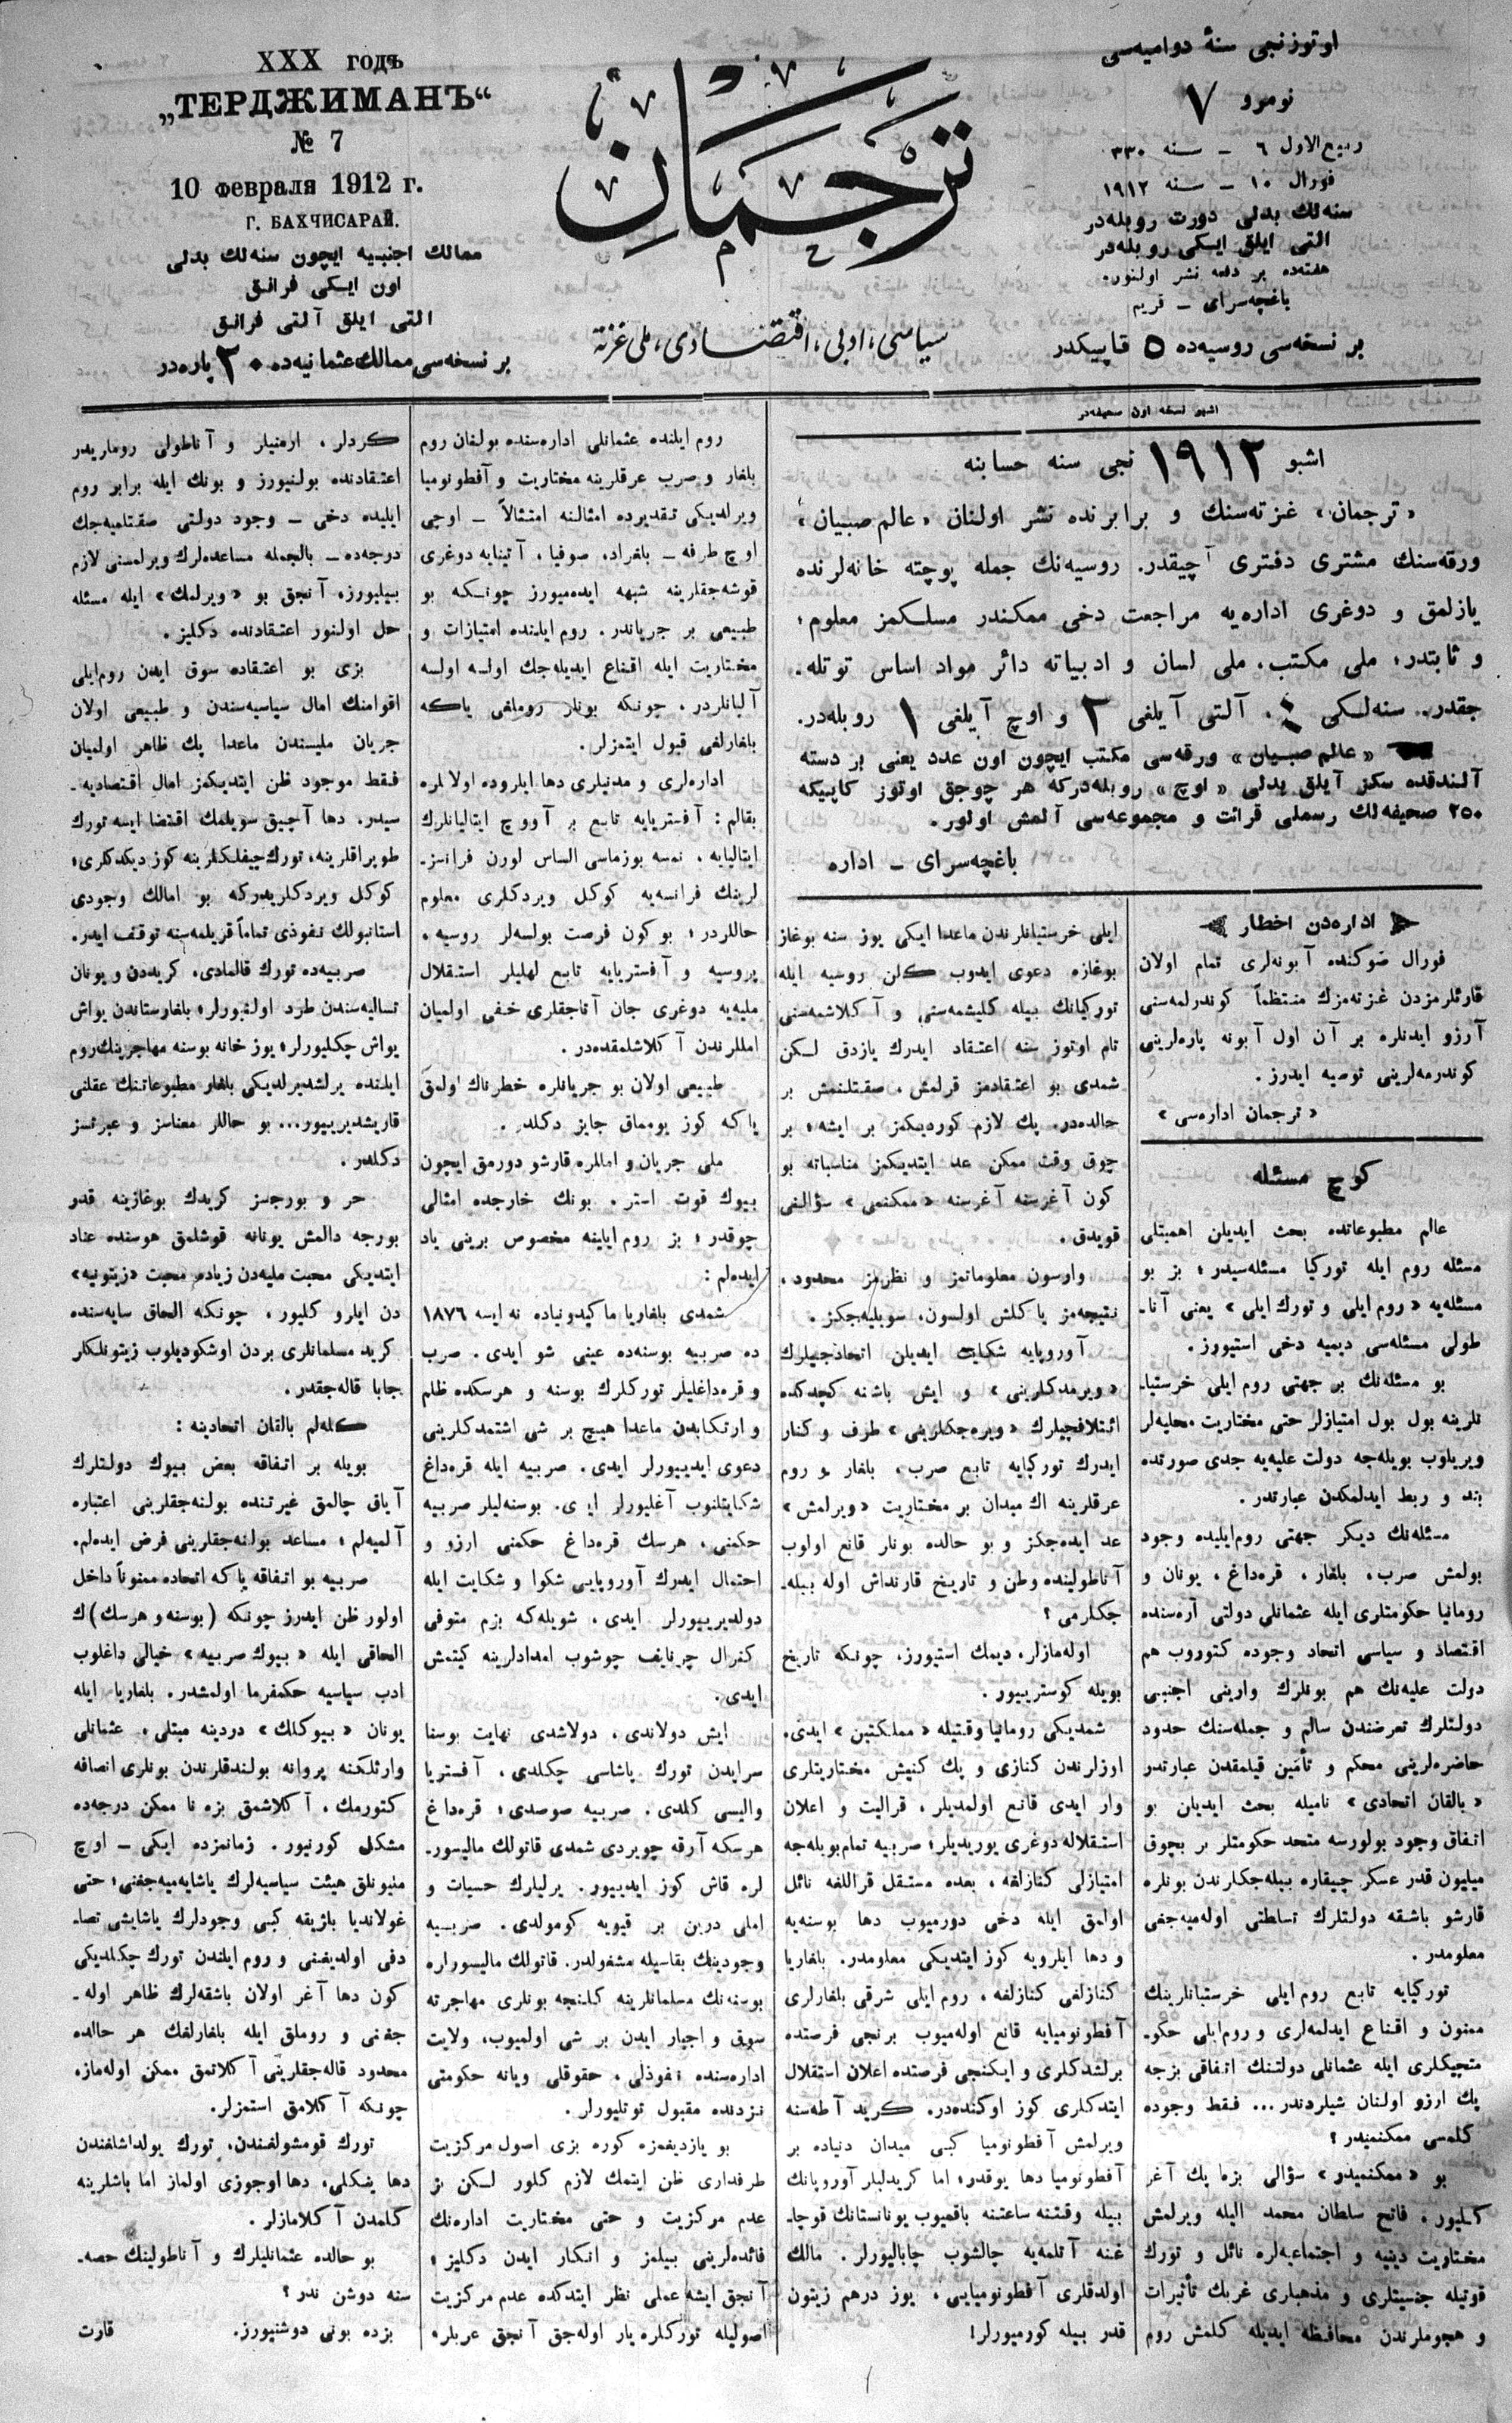 XXX годъ
„ТЕРДЖИМАНЪ“
№ 7
10 февраля 1912 г.
Г. БАХЧИСАРАЙ.
ممالك اجنبیه ایچون سنه‌لك بدلی
اون ایكی فرانق
التی ایلق آلتی فرانق
بر نسخه‌سی ممالك عثمانیه‌ده ٢٠ پاره‌در
ترجمان
سیاسی، ادبی، اقتصادی، ملی غزته
اوتوزنجی سنهٔ دوامیه‌سی
نومرو ٧
ربیع الاول ٦ – سنه ٣٣٠
فورال ١٠ – سنه ١٩١٢
سنه‌لك بدلی دورت روبله‌در
التی ایلق ایكی روبله‌در
هفته‌ده بر دفعه نشر اولنور.
باغچه‌سرای – قریم
بر نسخه‌سی روسیه‌ده ٥ قاپیكدر
اشبو نسخه اون صحیفه‌در
اشبو ١٩١٢ نجی سنه حسابنه
«ترجمان» غزته‌سنك و برابرنده نشر اولنان «عالم صبیان»
ورقه‌سنك مشتری دفتری آچیقدر. روسیه‌نك جمله پوچته خانه‌لرنده
یازلمق و دوغری اداره‌یه مراجعت دخی ممكندر مسلكمز معلوم،
و ثابتدر؛ ملی مكتب، ملی لسان و ادبیاته دائر مواد اساس توتله.
جقدر. سنه‌لكی ٤، آلتی آیلغی ٢ و اوچ آیلغی ١ روبله‌در.
«عالم صبیان» ورقه‌سی مكتب ایچون اون عدد یعنی بر دسته
آلندقده سكز آیلق بدلی «اوچ» روبله‌دركه هر چوجق اوتوز كاپیكه
٢٥٠ صحیفه‌لك رسملی قرائت و مجموعه‌سی آلمش اولور.
باغچه‌سرای – اداره
اداره‌دن اخطار
فورال صوكنده آبونه‌لری تمام اولان
قارئلرمزدن غزته‌مزك منتظماً كوندرلمه‌سنی
آرزو ایدنلره بر آن اول آبونه پاره‌لرینی
كوندرمه‌لرینی توصیه ایدرز.
«ترجمان اداره‌سی»
كوچ مسئله
عالم مطبوعاتده بحث ایدیلن اهمیتلی
مسئله روم ایله توركیا مسئله‌سیدر؛ بز بو
مسئله‌یه «روم ایلی و تورك ایلی» یعنی آنا-
طولی مسئله‌سی دیمیه دخی استیورز.
بو مسئله‌نك بر جهتی روم ایلی خرستیا-
نلرینه بول بول امتیازلر حتی مختاریت محلیه‌لر
ویریلوب بویله‌جه دولت علیه‌یه جدی صورتده
بند و ربط ایدلمكدن عبارتدر.
مسئله‌نك دیكر جهتی روم‌ایلیده وجود
بولمش صرب، بلغار، قره‌داغ، یونان و
رومانیا حكومتلری ایله عثمانلی دولتی آره‌سنده
اقتصاد و سیاسی اتحاد وجوده كتوروب هم
دولت علیه‌نك هم بونلرك وارینی اجنبی
دولتلرك تعرضندن سالم و جمله‌سنك حدود
حاضره‌لرینی محكم و تأمین قیلمقدن عبارتدر
«بالقان اتحادی» نامیله بحث ایدیلان بو
اتفاق وجود بولورسه متحد حكومتلر بر بچوق
میلیون قدر عسكر چیقاره بیله‌جكلرندن بونلره
قارشو باشقه دولتلرك تسلطتی اوله‌میه‌جغی
معلومدر.
توركیایه تابع روم ایلی خرستیانلرینك
ممنون و اقناع ایدلمه‌لری و روم‌ایلی حكو-
متجیكلری ایله عثمانلی دولتنك اتفاقی بزجه
پك ارزو اولنان شیلردندر... فقط وجوده
كلمسی ممكنمیدر؟
بو «ممكنمیدر» سؤالی بزه پك آغر
كلیور. فاتح سلطان محمد الیله ویرلمش
مختاریت دینیه و اجتماعیه‌لره نائل و تورك
قوتیله جنسیتلری و مذهبلری غربك تأثیرات
و هجوملرندن محافظه ایدیله كلمش روم
ایلی خرستیانلرندن ماعدا ایكی یوز سنه بوغاز
بوغازه دعوی ایدوب كلن روسیه ایله
توركیانك بیله كلیشمه‌سنی و آكلاشمه‌سنی
تام اوتوز سنه اعتقاد ایدرك یازدق لكن
شمدی بو اعتقادمز قرلمش، صقتلنمش بر
حالده‌در. پك لازم كوردیكمز بر ایشه، بر
چوق وقت ممكن عد ایتدیكمز مناسباته بو
كون آغرسنه آغرسنه «ممكنمی» سؤالنی
قویدق.
وارسون معلوماتمز و نظرمز محدود،
نتیجه‌مز یاكلش اولسون، سویلیه‌جكز.
آوروپایه شكایت ایدیلن اتحادجیلرك
«ویرمدكلرینی» و ایش باشنه كچدكده
ائتلافجیلرك «ویره‌جكلرینی» طرف و كنار
ایدرك توركیایه تابع صرب، بلغار و روم
عرقلرینه اك میدان بر مختاریت «ویرلمش»
عد ایده‌جكز و بو حالده بونلر قانع اولوب
آناطولینده وطن و تاریخ قارنداش اوله بیله-
جكلرمی؟
اوله‌مازلر، دیمك استیورز، چونكه تاریخ
بویله كوستریییور.
شمدیكی رومانیا وقتیله «مملكتین» ایدی.
اوزلرندن كنازی و پك كنیش مختاریتلری
وار ایدی قانع اولمدیلر، قرالیت و اعلان
استقلاله دوغری یوریدیلر؛ صربیه تمام بویله‌جه
امتیازلی كنازلغه، بعده مستقل قراللغه نائل
اولمق ایله دخی دورمیوب دها بوسنه‌یه
و دها ایلرویه كوز ایتدیكی معلومدر. بلغاریا
كنازلغی كنازلغه، روم ایلی شرقی بلغارلری
آفطونومیایه قانع اوله‌میوب برنجی فرصتده
برلشدكلری و ایكنجی فرصتده اعلان استقلال
ایتدكلری كوز اوكنده‌در. كرید آطه‌سنه
ویرلمش آفطونومیا كبی میدان دنیاده بر
آفطونومیا دها یوقدر؛ اما كریدلیلر آوروپانك
بیله وقتنه ساعتنه باقمیوب یونانستانك قوجا-
غنه آتلمه‌یه چالشوب چابالیورلر. مالك
اولدقلری آفطونومیایی، یوز درهم زیتون
قدر بیله كورمیورلر!
روم ایلنده عثمانلی اداره‌سنده بولنان روم
بلغار و صرب عرقلرینه مختاریت و آفطونومیا
ویرلدیكی تقدیرده امثالنه امتثالاً – اوچی
اوچ طرفه – بلغراد، صوفیا، آتینایه دوغری
قوشه‌جقلرینه شبهه ایده‌میورز چونكه بو
طبیعی بر جریاندر. روم ایلنده امتیازات و
مختاریت ایله اقناع ایدیله‌جك اولسه اولسه
آلبانلردر، چونكه بونلر روملغی یاكه
بلغارلغی قبول ایتمزلر.
اداره‌لری و مدنیلری دها ایلروده اولانلره
بقالم: آفستریایه تابع بر آووچ ایتالیانلرك
ایتالیایه، نمسه بوزماسی الساس لورن فرانسز-
لرینك فرانسه‌یه كوكل ویردكلری معلوم
حاللردر؛ بو كون فرصت بولسه‌لر روسیه،
پروسیه و آفستریایه تابع لهلیلر استقلال
ملیه‌یه دوغری جان آتاجقلری خفی اولمیان
امللرندن آكلاشلمقده‌در.
طبیعی اولان بو جریانلره خطرناك اولمق
یاكه كوز یومماق جایز دكلدر.
ملی جریان و امللره قارشو دورمق ایچون
بیوك قوت استر. بونك خارجده امثالی
چوقدر؛ بز روم ایلینه مخصوص برینی یاد
ایده‌لم:
شمدی بلغاریا ماكیدونیاده نه ایسه ١٨٧٦
ده صربیه بوسنه‌ده عینی شو ایدی. صرب
و قره‌داغلیلر توركلرك بوسنه و هرسكده ظلم
و ارتكابدن ماعدا هیچ بر شی اشتمدكلرینی
دعوی ایدییورلر ایدی. صربیه ایله قره‌داغ
شكایتلنوب آغلیورلر ایدی. بوسنه‌لیلر صربیه
حكمنی، هرسك قره‌داغ حكمنی ارزو و
احتمال ایدرك آوروپایی شكوا و شكایت ایله
دولدیرییورلر ایدی، شویله‌كه بزم متوفی
كنرال چرنایف چوشوب امدادلرینه كیتمش
ایدی.
ایش دولاندی، دولاشدی نهایت بوسنا
سرایدن تورك پاشاسی چكلدی، آفستریا
والیسی كلدی. صربیه صوصدی؛ قره‌داغ
هرسكه آرقه چویردی شمدی قاتولك مالیسور-
لره قاش كوز ایدییور. یرلیلرك حسیات و
املی درین بر قیویه كومولدی. صربیه
وجودینك بقاسیله مشغولدر. قاتولك مالیسورلره
بوسنه‌نك مسلمانلرینه كلنجه بونلری مهاجرته
سوق و اجبار ایدن بر شی اولمیوب، ولایت
اداره‌سنده نفوذلی، حقوقلی ویانه حكومتی
نزدنده مقبول توتلیورلر.
بو یازدیغمزه كوره بزی اصول مركزیت
طرفداری ظن ایتمك لازم كلور لكن بز
عدم مركزیت و حتی مختاریت اداره‌نك
فائده‌لرینی بیلمز و انكار ایدن دكلیز؛
آنجق ایشه عملی نظر ایتدكده عدم مركزیت
اصولیله توركلره یار اوله‌جق آنجق عربلر،
كردلر، ارمنیلر و آناطولی روملریدر
اعتقادنده بولنیورز و بونك ایله برابر روم
ایلیده دخی – وجود دولتی صقتلمیه‌جك
درجه‌ده – بالجمله مساعده‌لرك ویرلمسنی لازم
بیلیورز. آنجق بو «ویرلمك» ایله مسئله
حل اولنور اعتقادنده دكلیز.
بزی بو اعتقاده سوق ایدن روم‌ایلی
اقوامنك امال سیاسیه‌سندن و طبیعی اولان
جریان ملیسندن ماعدا پك ظاهر اولمیان
فقط موجود ظن ایتدیكمز امال اقتصادیه-
سیدر. دها آچیق سویلمك اقتضا ایسه تورك
طوپراقلرینه، تورك چیفلكلرینه كوز دیكدكلری؛
كوكل ویردكلریدركه بو امالك وجودی
استانبولك نفوذی تماماً قریلمه‌سنه توقف ایدر.
صربیه‌ده تورك قالمادی. كریددن و یونان
تسالیه‌سندن طرد اولنیورلر؛ بلغارستاندن یواش
یواش چكلیورلر؛ یوز خانه بوسنه مهاجرینك روم
ایلنده یرلشدیرلدیكی بلغار مطبوعاتنك عقلنی
قاریشدیرییور... بو حاللر معناسز و عبرتسز
دكلدر.
حر و بورجسز كریدك بوغازینه قدر
بورجه دالمش یونانه قوشلمق هوسنده عناد
ایتدیكی محبت ملیه‌دن زیاده محبت «زیتونیه»
دن ایلرو كلیور، چونكه الحاق سایه‌سنده
كرید مسلمانلری بردن اوشكودیلوب زیتونلكلر
جابا قاله‌جقدر.
كله‌لم بالقان اتحادینه:
بویله بر اتفاقه بعض بیوك دولتلرك
آیاق چالمق غیرتنده بولنه‌جقلرینی اعتباره
آلمیه‌لم؛ مساعد بولنه‌جقلرینی فرض ایده‌لم.
صربیه بو اتفاقه یاكه اتحاده ممنوناً داخل
اولور ظن ایدرز چونكه (بوسنه و هرسك)ك
الحاقی ایله «بیوك صربیه» خیالی داغلوب
ادب سیاسیه حكمفرما اولمشدر. بلغاریا ایله
یونان «بیوكلك» دردینه مبتلی، عثمانلی
وارثلكنه پروانه بولندقلرندن بونلری انصافه
كتورمك، آكلاشمق بزه نا ممكن درجه‌ده
مشكل كورنیور. زمانمزده ایكی – اوچ
ملیونلق هیئت سیاسیه‌لرك یاشایه‌میه‌جغنی؛ حتی
غولاندیا بلژیقه كبی وجودلرك یاشایشی تصا-
دفی اولدیغنی و روم ایلندن تورك چكلدیكی
كون دها آغر اولان باشقه‌لرك ظاهر اوله-
جغنی و روملق ایله بلغارلغك هر حالده
محدود قاله‌جقلرینی آكلاتمق ممكن اوله‌ماز،
چونكه آكلامق استمزلر.
تورك قومشولغندن، تورك یولداشلغندن
دها یمكلی، دها اوجوزی اولماز اما باشلرینه
كلمدن آكلامازلر.
بو حالده عثمانلیلرك و آناطولینك حصه-
سنه دوشن ندر؟
بزده بونی دوشنیورز.
قارت